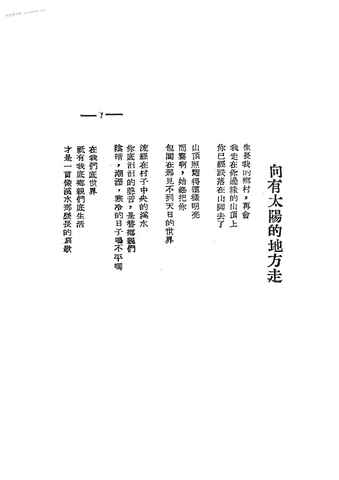 向有太陽的地方走
生長我的鄉村，再會
我走在你邊緣的山頂上
你已經跌落在山脚去了
山頂照耀得這樣明亮
而霧啊，始終把你
包圍在那見不到天日的世界
流經在村子中央的溪水
你底汩汩的聲音，是替鄉親們
陰暗，潮濕，寒冷的日子鳴不平嗎
在我們底世界
祇有我底鄉親們底生活
才是一首像溪水那麼長的哀歌
— 7 —